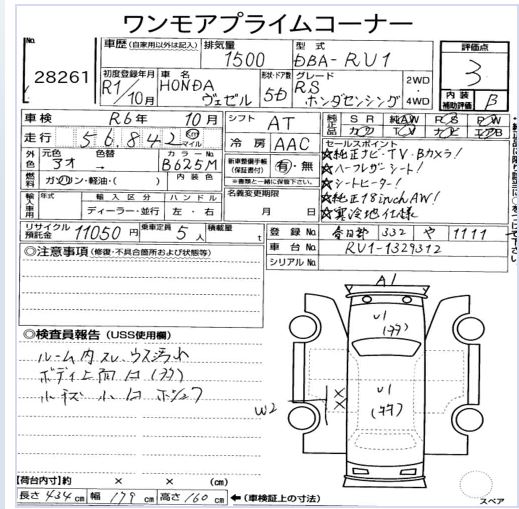 ワンモアプライムコーナー
No.
28261
車歴 (自家用以外は記入)
排気量
1500
型式
DBA-RU1
評価点
3
内装
補助評価
B
初度登録年月
R1/10月
車名
HONDA
ヴェゼル
形状・ドア数
5D
グレード
RS
ホンダセンシング
2WD
・
4WD
車検
R6年 10月
シフト
AT
純正品
SR AW PS PW
カワ TV ナビ エアB
走行
56,842 km
マイル
冷房
AAC
セールスポイント
☆純正ナビ・TV・Bカメラ!
☆ハーフレザーシート!
☆シートヒーター!
☆純正18inchAW!
☆寒冷地仕様
外色
元色
アオ
色替
→
カラーNo.
B625M
新車整備手帳
(保証書付)
有・無
※書類と一緒に保管下さい
燃料
ガソリン・軽油・( )
内装色
名義変更期限
月 日
輸入車用
年式
輸入区分
ディーラー・並行
ハンドル
左・右
リサイクル
預託金
11050 円
乗車定員
5人
積載量
t
登録No.
春日部 332 や 1111
車台No.
RU1-1329312
シリアルNo.
◎注意事項 (修復・不具合箇所および状態等)
◎検査員報告 (USS使用欄)
ルーム内スレ ウス汚れ
小キズ 小凹
A1
U1
U1
W2
×
×
【荷台内寸】約 × × (cm)
長さ 434 cm 幅 179 cm 高さ 160 cm ←(車検証上の寸法)
スペア